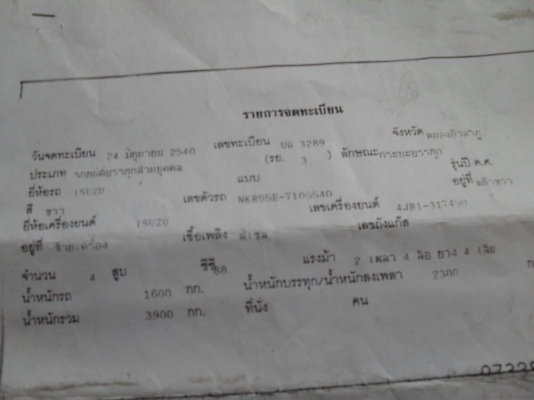 รายการจดทะเบียน
วันจดทะเบียน 24 มิถุนายน 2540 เลขทะเบียน บจ 3289 จังหวัด
ประเภท รถยนต์บรรทุกส่วนบุคคล (รย. 3 ) ลักษณะกระบะบรรทุก
ยี่ห้อรถ ISUZU แบบ รุ่นปี ค.ศ.
สี ขาว เลขตัวรถ NKR55E-7105540 อยู่ที่
ยี่ห้อเครื่องยนต์ ISUZU เลขเครื่องยนต์ 4JB1-
อยู่ที่ ซ้ายเครื่อง เชื้อเพลิง ดีเซล เลขถังแก๊ส
จำนวน 4 สูบ ซีซี แรงม้า 2 เพลา 4 ล้อ ยาง 4 เส้น
น้ำหนักรถ 1600 กก. น้ำหนักบรรทุก/น้ำหนักลงเพลา 2300
น้ำหนักรวม 3900 กก. ที่นั่ง คน